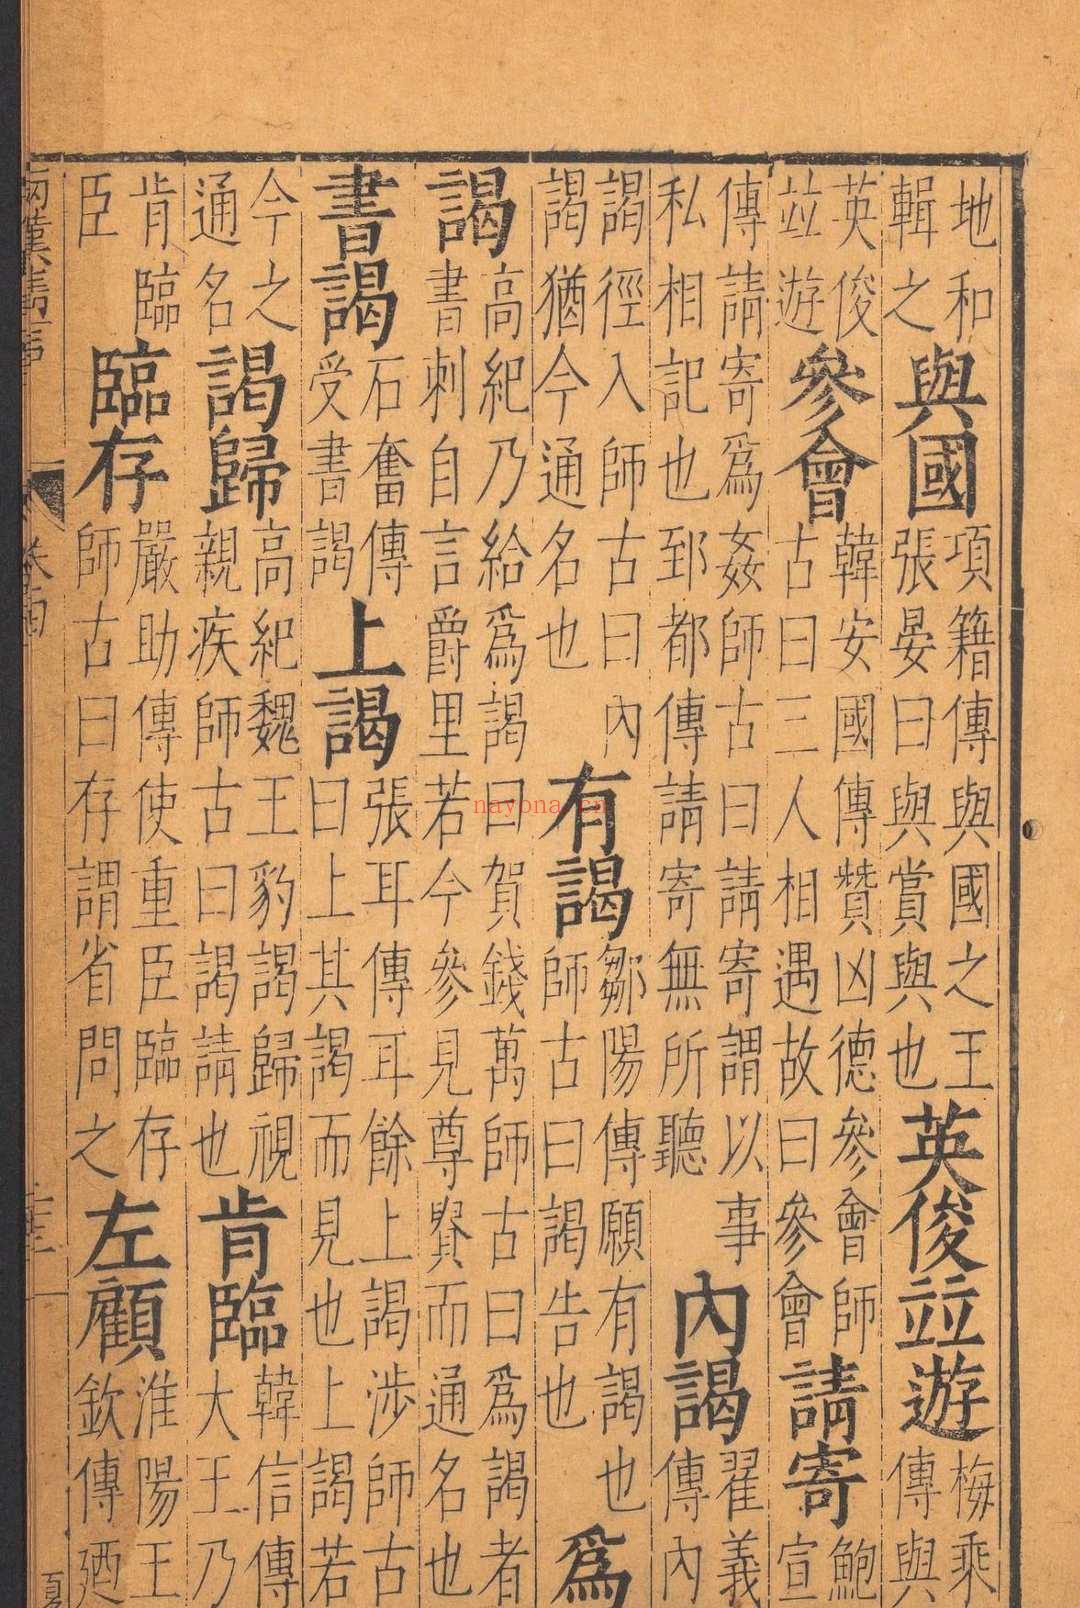 地和輯之與國項籍傳與國之王張晏曰與賞與也英俊並遊梅乘傳與
英俊並遊參會韓安國傳贊凶德參會師古曰三人相遇故曰參會請寄鮑宣
傳請寄爲姦師古曰請寄謂以事私相記也郅都傳請寄無所聽內謁翟義傳內
謁徑入師古曰內謁猶今通名也有謁鄒陽傳願有謁也師古曰謁告也爲
謁高紀乃給爲謁曰賀錢萬師古曰爲謁者書刺自言爵里若今參見尊貴而通名也
書謁石奮傳受書謁上謁張耳傳耳餘上謁涉師古曰上其謁而見也上謁若
今之通名謁歸高紀魏王豹謁歸視親疾師古曰謁請也肯臨韓信傳大王乃
肯臨臣臨存嚴助傳使重臣臨存師古曰存謂省問之左顧淮陽王欽傳廼
nayona.cn